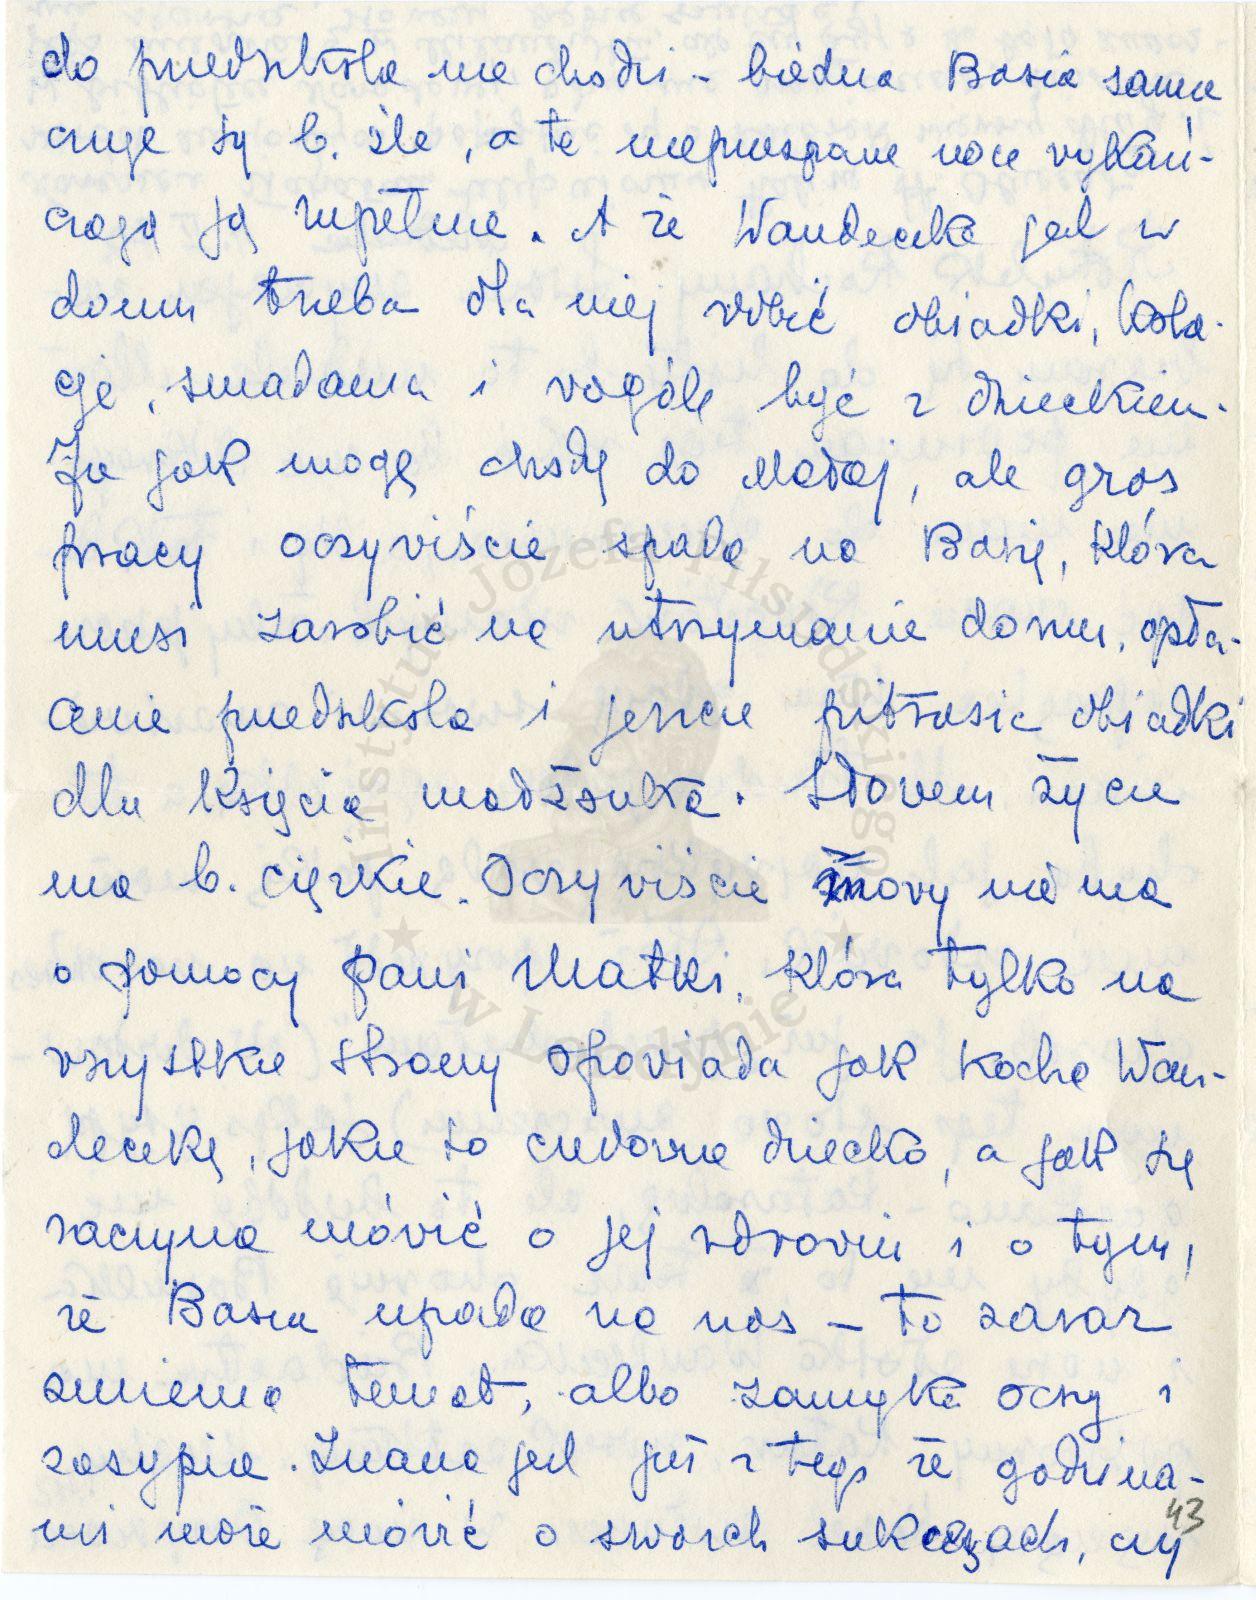 do przedszkola nie chodzi – biedna Basia sama
czuje się b. źle, a te nieprzespane noce wykań-
czają ją zupełnie. A że Wandeczka jest w
domu trzeba dla niej robić obiadki, kola-
cje, śniadania i vogóle być z dzieckiem.
Ja jak mogę chodzę do Małej, ale gros
pracy oczyviście spada na Basię, która
musi zarobić na utrzymanie domu, opła-
cenie przedszkola i jeszcze pitrasić obiadki
dla księcia małżonka. Słovem życie
ma b. ciężkie. Oczyviście movy nie ma
o pomocy pani Matki, która tylko na
vszystkie strony opoviada jak kocha Wan-
deczkę, jakie to cudowne dziecko, a jak się
zaczyna móvić o jej zdroviu i o tym,
że Basia upada na nos – to zaraz
zmienia temat, albo zamyka oczy i
zasypia. Znana jest już z tego że godzina-
mi może móvić o swoich sukcesach, czy
43
Instytut Józefa Piłsudskiego
w Londynie